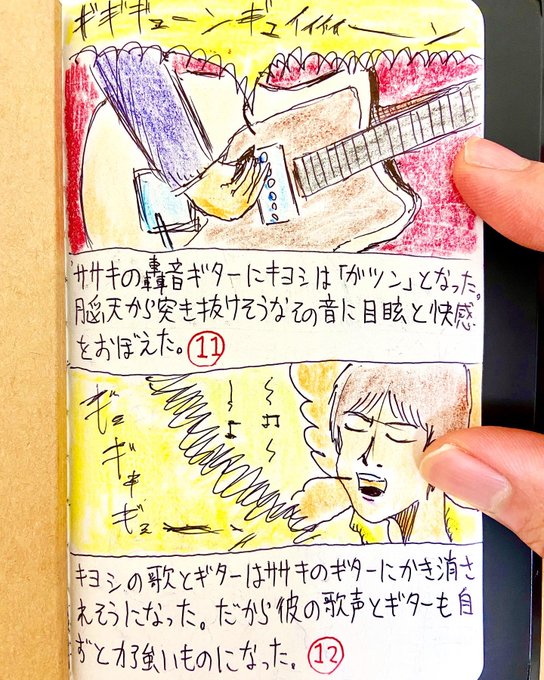 ギギギューーンギュイイイイーーン
ササキの轟音ギターにキヨシは「ガツン」となった。
脳天から突き抜けそうなその音に目眩と快感
をおぼえた。⑪
ギュ
ギャ
ギュー
キヨシの歌とギターはササキのギターにかき消さ
れそうになった。だから彼の歌声とギターも自
ずと力強いものになった。⑫